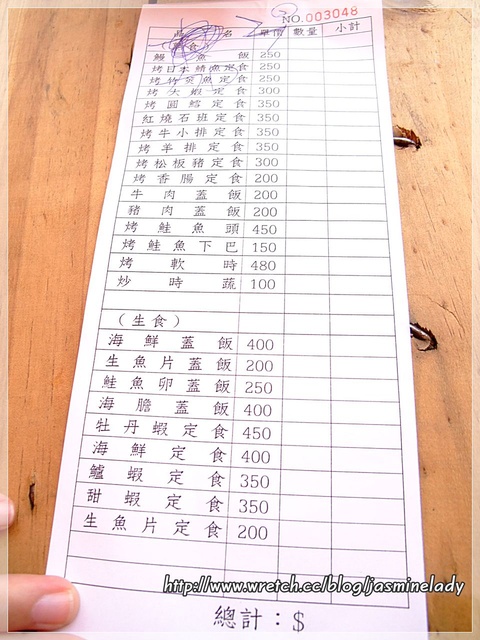 NO.003048
品名 單價 數量 小計
鰻魚飯 250
烤日本鯖魚定食 250
烤竹筴魚定食 250
烤大蝦定食 300
烤圓鱈定食 350
紅燒石班定食 350
烤牛小排定食 350
烤羊排定食 350
烤松板豬定食 300
烤香腸定食 200
牛肉蓋飯 200
豬肉蓋飯 200
烤鮭魚頭 450
烤鮭魚下巴 150
烤軟時 480
炒時蔬 100
(生食)
海鮮蓋飯 400
生魚片蓋飯 200
鮭魚卵蓋飯 250
海膽蓋飯 400
牡丹蝦定食 450
海鮮定食 400
鱸蝦定食 350
甜蝦定食 350
生魚片定食 200
總計:$
http://www.wretch.cc/blog/jasminelady